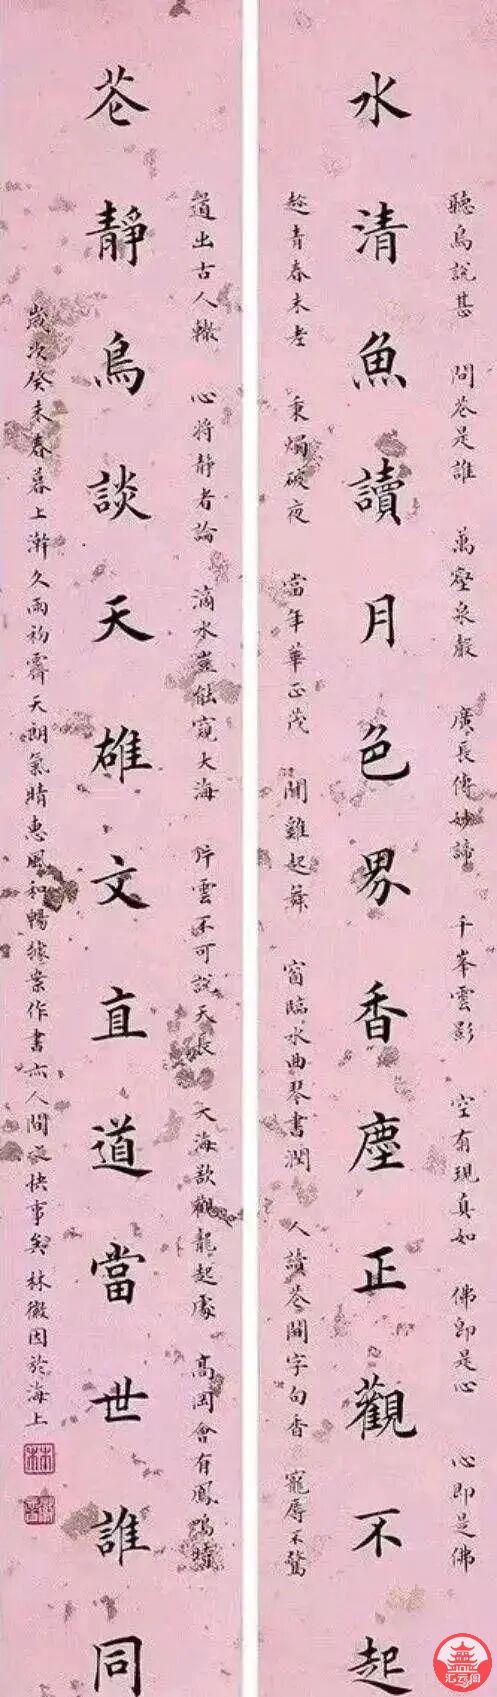 聽鳥說甚 問花是誰 萬壑泉聲 廣長傳妙諦 千峯雲影 空有現真如 佛即是心 心即是佛
水清魚讀月色界香塵正觀不起
趁青春未老 秉燭破夜 當年華正茂 聞雞起舞 窗臨水曲琴書潤 人讀花間字句香 寵辱不驚
道出古人轍 心將靜者論 滴水豈能窺大海 片雲不可說天長 大海欲觀龍起處 高岡會有鳳鳴時
花靜鳥談天雄文直道當世誰同
歲次癸未春暮上澣久雨初霽天朗氣晴惠風和暢據案作書亦人間快事矣 林徽因於海上
汇云阁